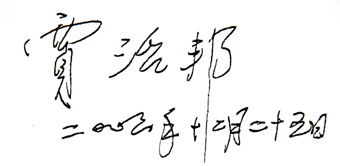 贾治邦
二〇〇六年十二月二十五日